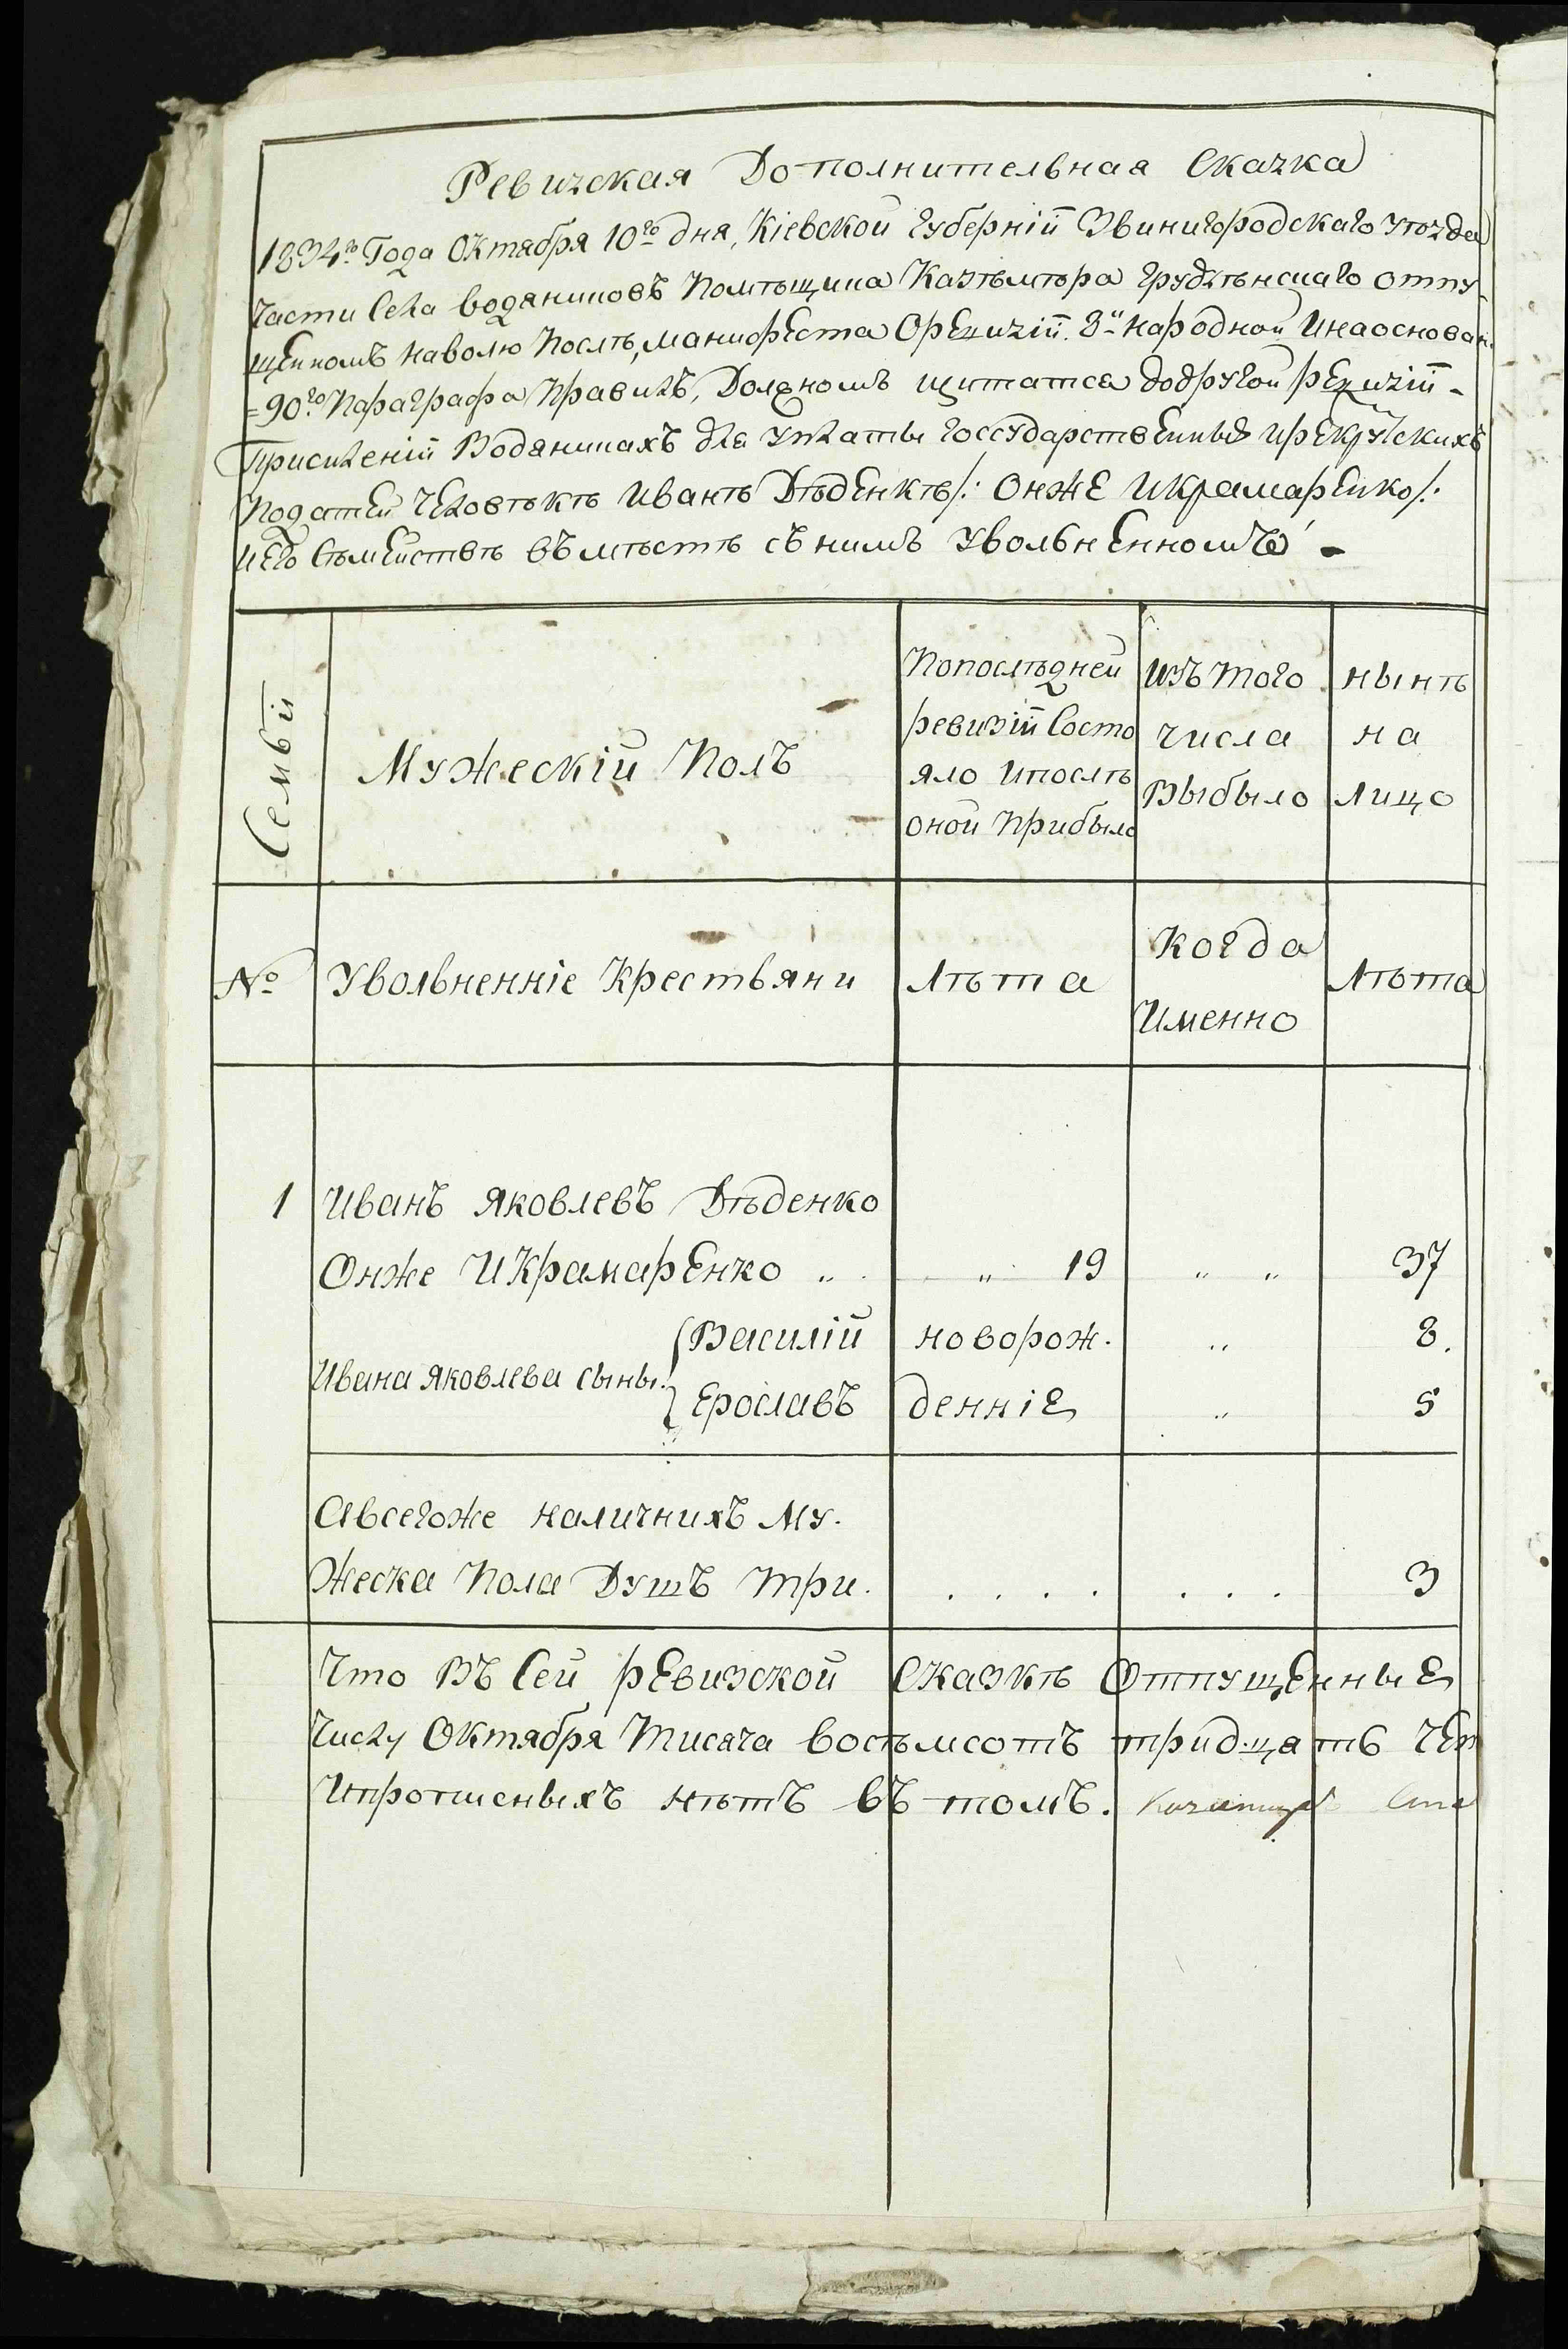 Ревизская Дополнительная Сказка
1834го Года Октября 10го дня, Кіевской Губерніи Звинигородскаго Уѣзда
части Села водяниковъ Помѣщика Казѣмѣра Грудзѣнскаго отпу-
щеномъ наволю Послѣ, манифеста Оревизіи 8й Народной Инаоснован.
=90го Параграфа Правилъ, Должномъ щитатся додругой ревизіи -
Присиленіи Водяникахъ для Уплаты Госсударственныхъ ирекрутскихъ
Податей человѣкѣ Иванѣ Дѣденкѣ /: Онже Икрамаренко /:
иего Сѣмействѣ въмѣстѣ снимъ Увольненномъ -
Семьи
Мужескій Полъ
Попослѣдней
ревизіи Состо
яло Ипослѣ
оной Прибыло
Изъ того
числа
Выбыло
нынѣ
на
лицо
№
Увольненніе Крестьяни
Лѣта
Когда
Именно
Лѣта
1 Иванъ Яковлевъ Дѣденко
Онже ИКрамаренко „ „ 19 „ „ 37
Ивана Яковлева сыны { Василій новорож. „ 8.
Ерославъ денніе „ 5
Авсегоже наличнихъ Му.
Жеска Пола Душъ три. . . . . . . . 3
Что Въ Сей ревизской Сказкѣ Отпущенные
Числу Октября Тисяча восѣмсотъ тридцать чет
Ипрописныхъ нѣтъ въ томъ.